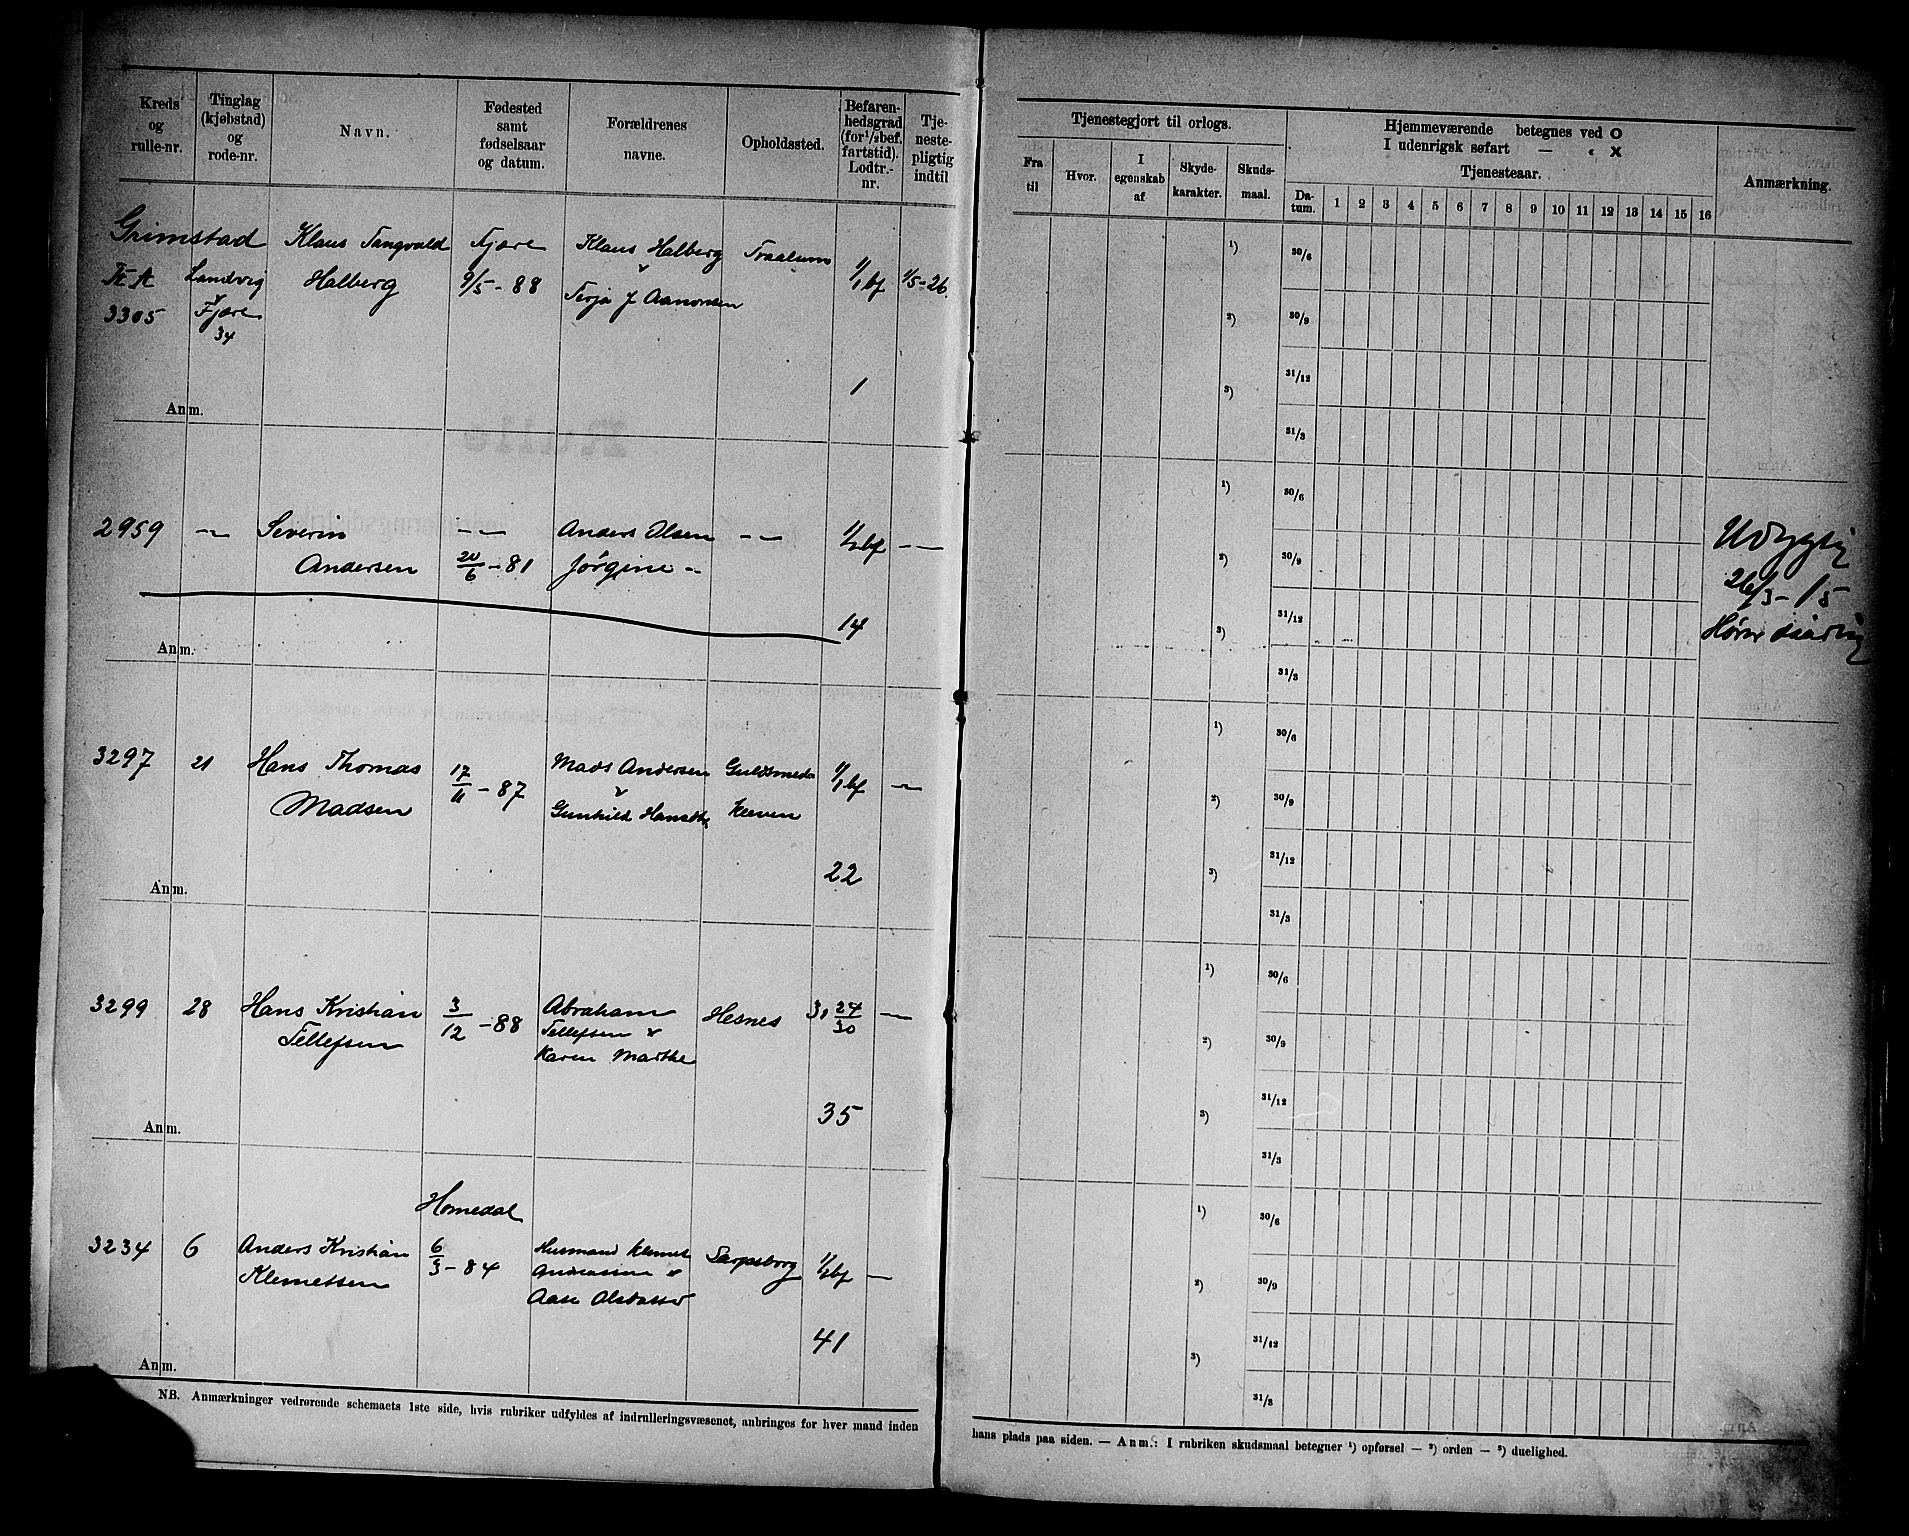 Kreds og rulle-nr.
Tinglag (kjøbstad) og rode-nr.
Navn.
Fødested samt fødselsaar og datum.
Forældrenes navne.
Opholdssted.
Befarenhedsgrad (for 1/2 bef. fartstid). Lodtr.-nr.
Tjenestepligtig indtil
Tjenestegjort til orlogs.
Fra til
Hvor.
I egenskab af
Skydekarakter.
Skudsmaal.
Hjemmeværende betegnes ved O
I udenrigsk søfart — « X
Tjenesteaar.
Datum.
1 2 3 4 5 6 7 8 9 10 11 12 13 14 15 16
Anmærkning.
Grimstad
3305
Landvig
Fjære
34
Klaus Tangvald
Halberg
Fjære
9/5 - 88
Klaus Halberg
v
Terja J Aanonsen
Traalum
1/1 bf
1
1/5-26.
Anm.
1) 30/6
2) 30/9
31/12
3)
31/3
2959
-〃-
Severin
Andersen
-〃-
20/6 - 81
Anders Olsen
Jørgine -〃
-〃-
1/2 bf
14
-〃-
Anm.
1) 30/6
2) 30/9
31/12
3)
31/3
Udygtig
26/3 - 15
3297
21
Hans Thomas
Madsen
17/11 - 87
Mads Andersen
v
Gunhild
Guldsmed
1/1 bf
22
-〃-
Anm.
1) 30/6
2) 30/9
31/12
3)
31/3
3299
28
Hans Kristian
Tellefsen
3/12 - 88
Abraham
Tellefsen v
Karen Marthe
Hesnes
31 24/30
35
-〃-
Anm.
1) 30/6
2) 30/9
31/12
3)
31/3
3234
6
Anders Kristian
Klemetsen
Homedal
6/3 - 84
Husmand Klemet
Andreassen v
Aase
Sarpsborg
1/2 bf
41
—
Anm.
1) 30/6
2) 30/9
31/12
3)
31/3
NB. Anmærkninger vedrørende schemaets 1ste side, hvis rubriker udfyldes af indrulleringsvæsenet, anbringes for hver mand inden
hans plads paa siden. — Anm.: I rubriken skudsmaal betegner ¹) opførsel — ²) orden — ³) duelighed.